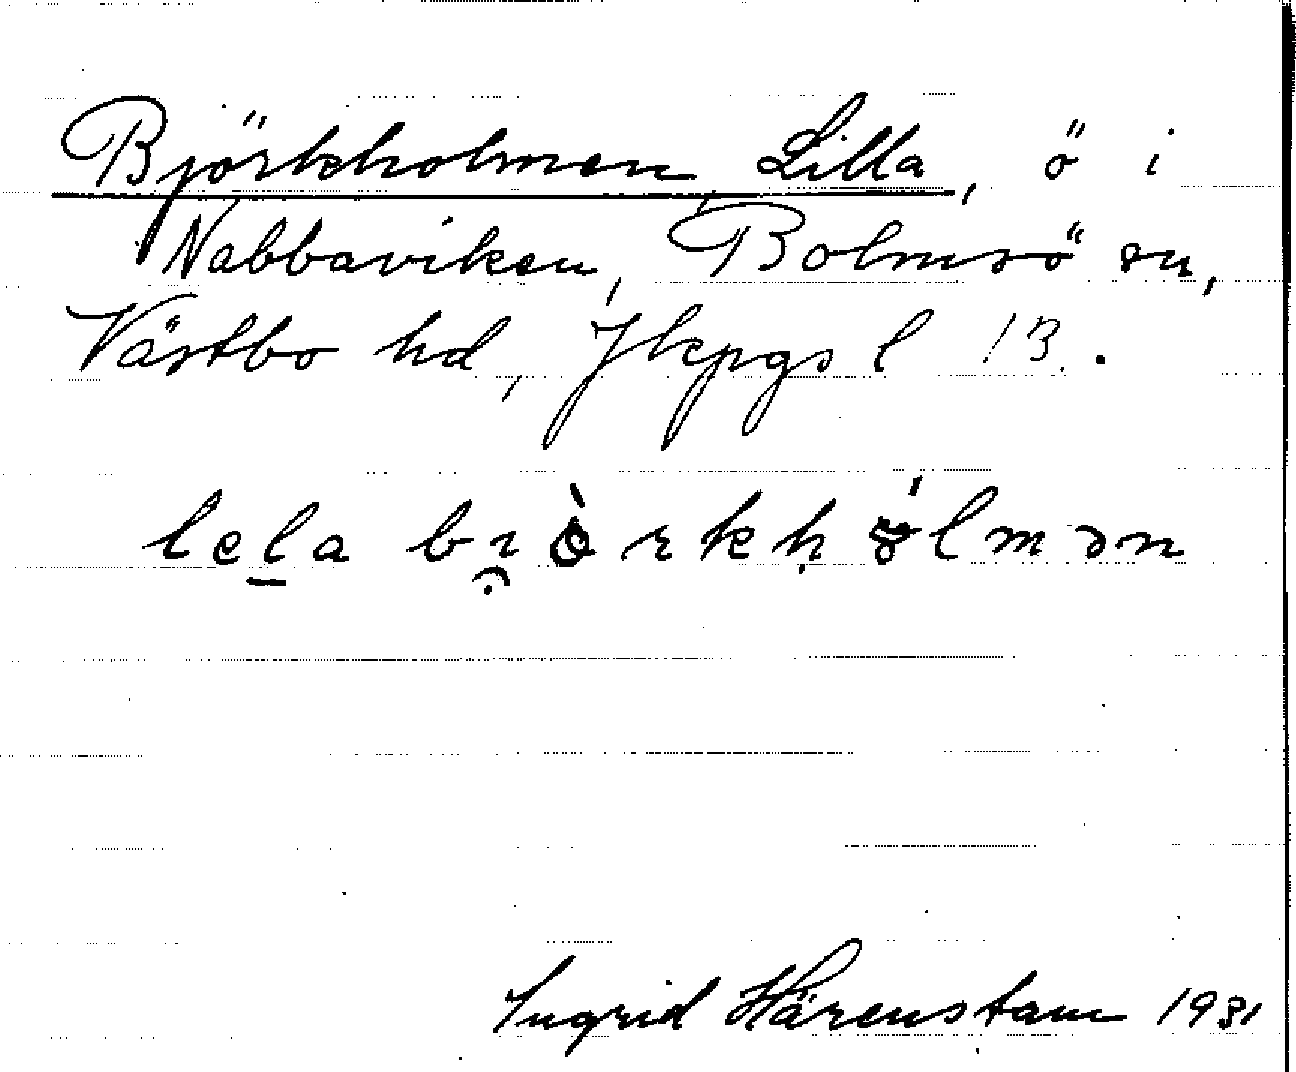 Björkholmen, Lilla, ö i
Nabbaviken, Bolmsö sn,
Västbo hd, Jkpgs l 13.
lela
Ingrid Härenstam 1931